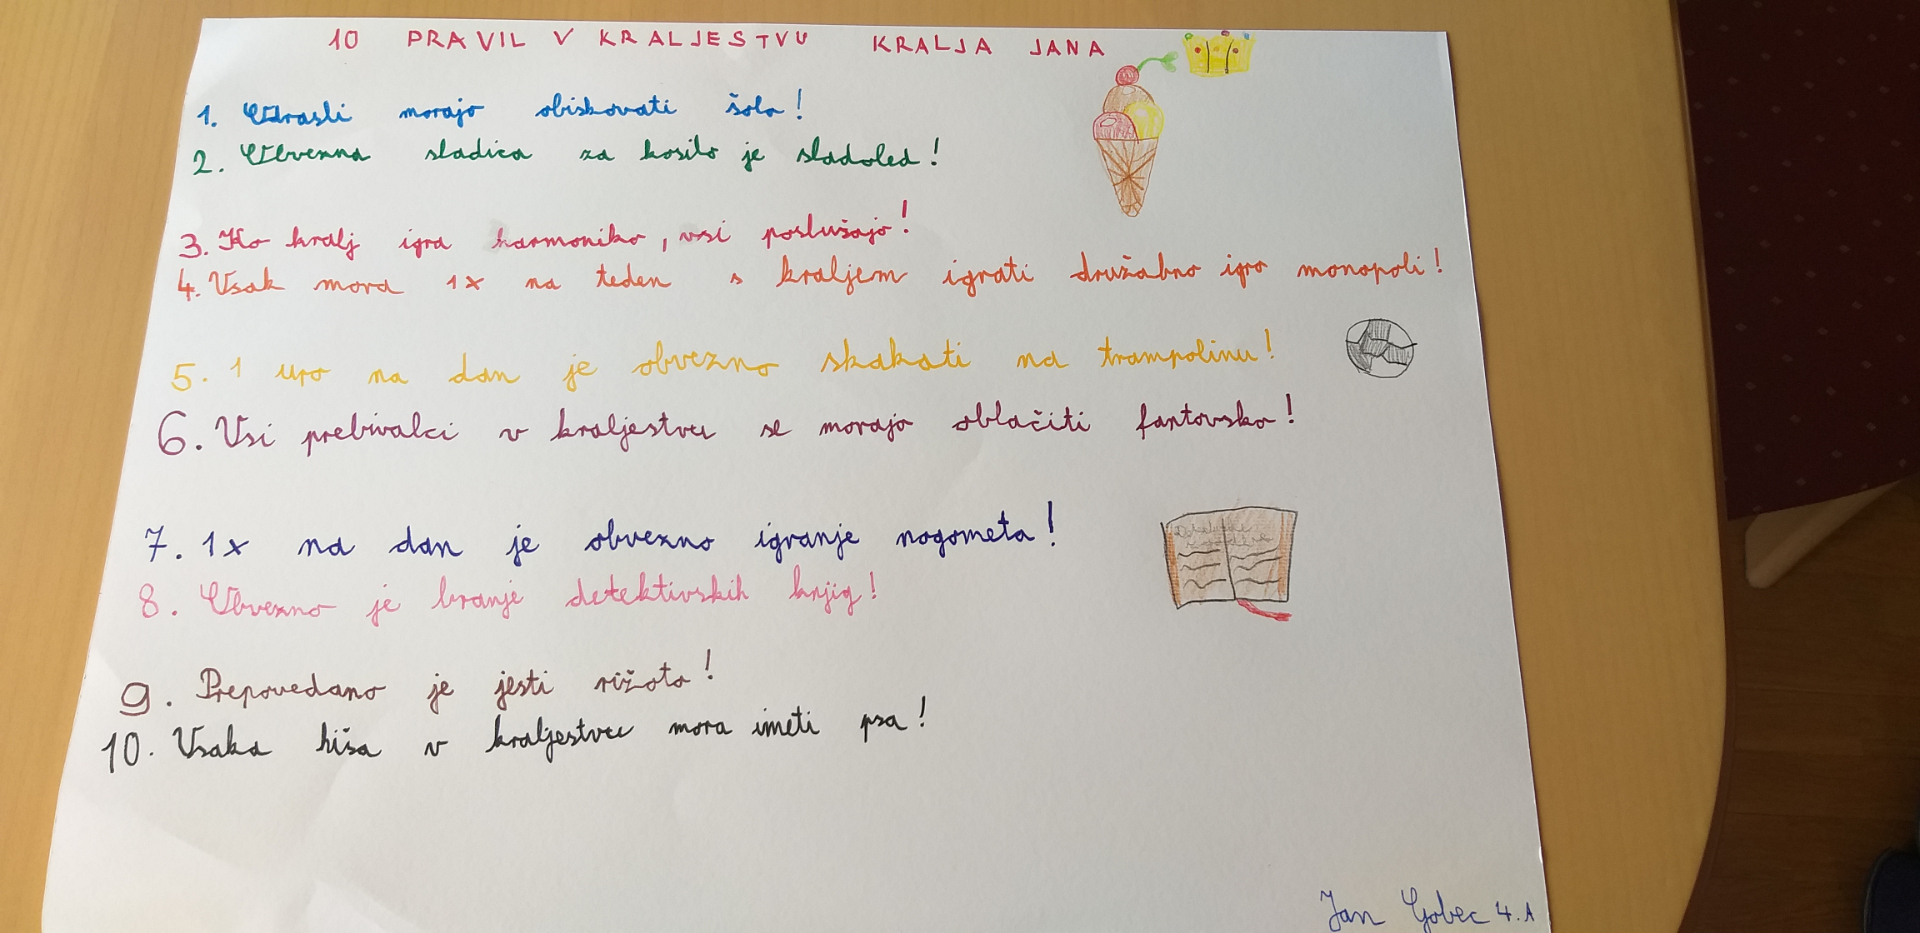 10 PRAVIL V KRALJESTVU KRALJA JANA
1. Odrasli morajo obiskovati šolo!
2. Obvezna sladica za kosilo je sladoled!
3. Ko kralj igra harmoniko, vsi poslušajo!
4. Vsak mora 1x na teden s kraljem igrati družabno igro monopoli!
5. 1 uro na dan je obvezno skakati na trampolinu!
6. Vsi prebivalci v kraljestvu se morajo oblačiti fantovsko!
7. 1x na dan je obvezno igranje nogometa!
8. Obvezno je branje detektivskih knjig!
9. Prepovedano je jesti rižoto!
10. Vsaka hiša v kraljestvu mora imeti psa!
Jan Gobec 4. A